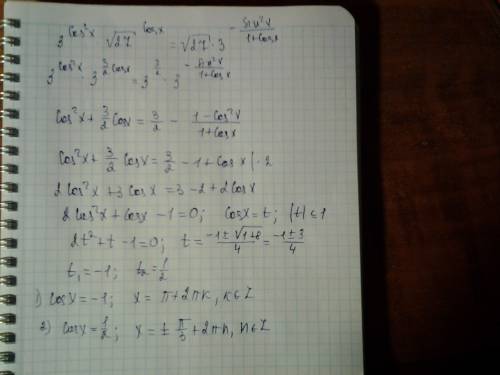 3^(cos²x) √27^(cosx) = √27 · 3^(-sin²x/(1+cosx))
3^(cos²x) · 3^(3/2 cosx) = 3^(3/2) · 3^(-sin²x/(1+cosx))
cos²x + 3/2 cosx = 3/2 - (1-cos²x)/(1+cosx)
cos²x + 3/2 cosx = 3/2 - 1 + cosx | · 2
2cos²x + 3cosx = 3 - 2 + 2cosx
2cos²x + cosx - 1 = 0; cosx = t; |t| ≤ 1
2t² + t - 1 = 0; t = (-1±√(1+8))/4 = (-1±3)/4
t₁ = -1; t₂ = 1/2
1) cosx = -1; x = π + 2πk, k∈Z
2) cosx = 1/2; x = ± π/3 + 2πn, n∈Z